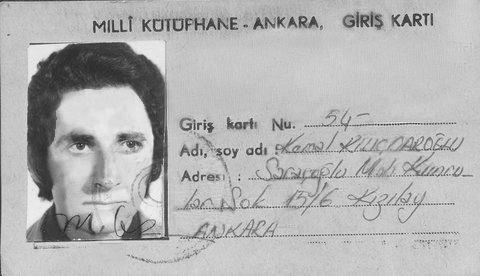 MİLLİ KÜTÜPHANE - ANKARA, GİRİŞ KARTI
Giriş kartı Nu. 54-
Adı, soy adı : Kemal KILIÇDAROĞLU
Adresi : Saraçoğlu Mah. Kumru-
lar Sok 15/6 Kızılay
ANKARA